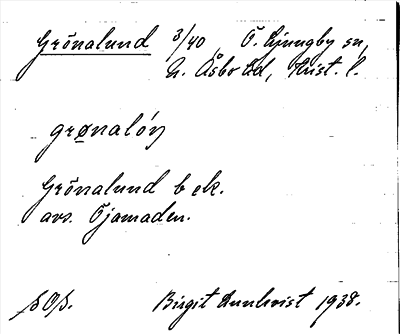 Grönalund 3/40, Ö. Ljungby sn,
N. Åsbo hd, Krist. l.
grønalóŋ
Grönalund b ek.
avs. Öjamaden.
Birgit 1938.